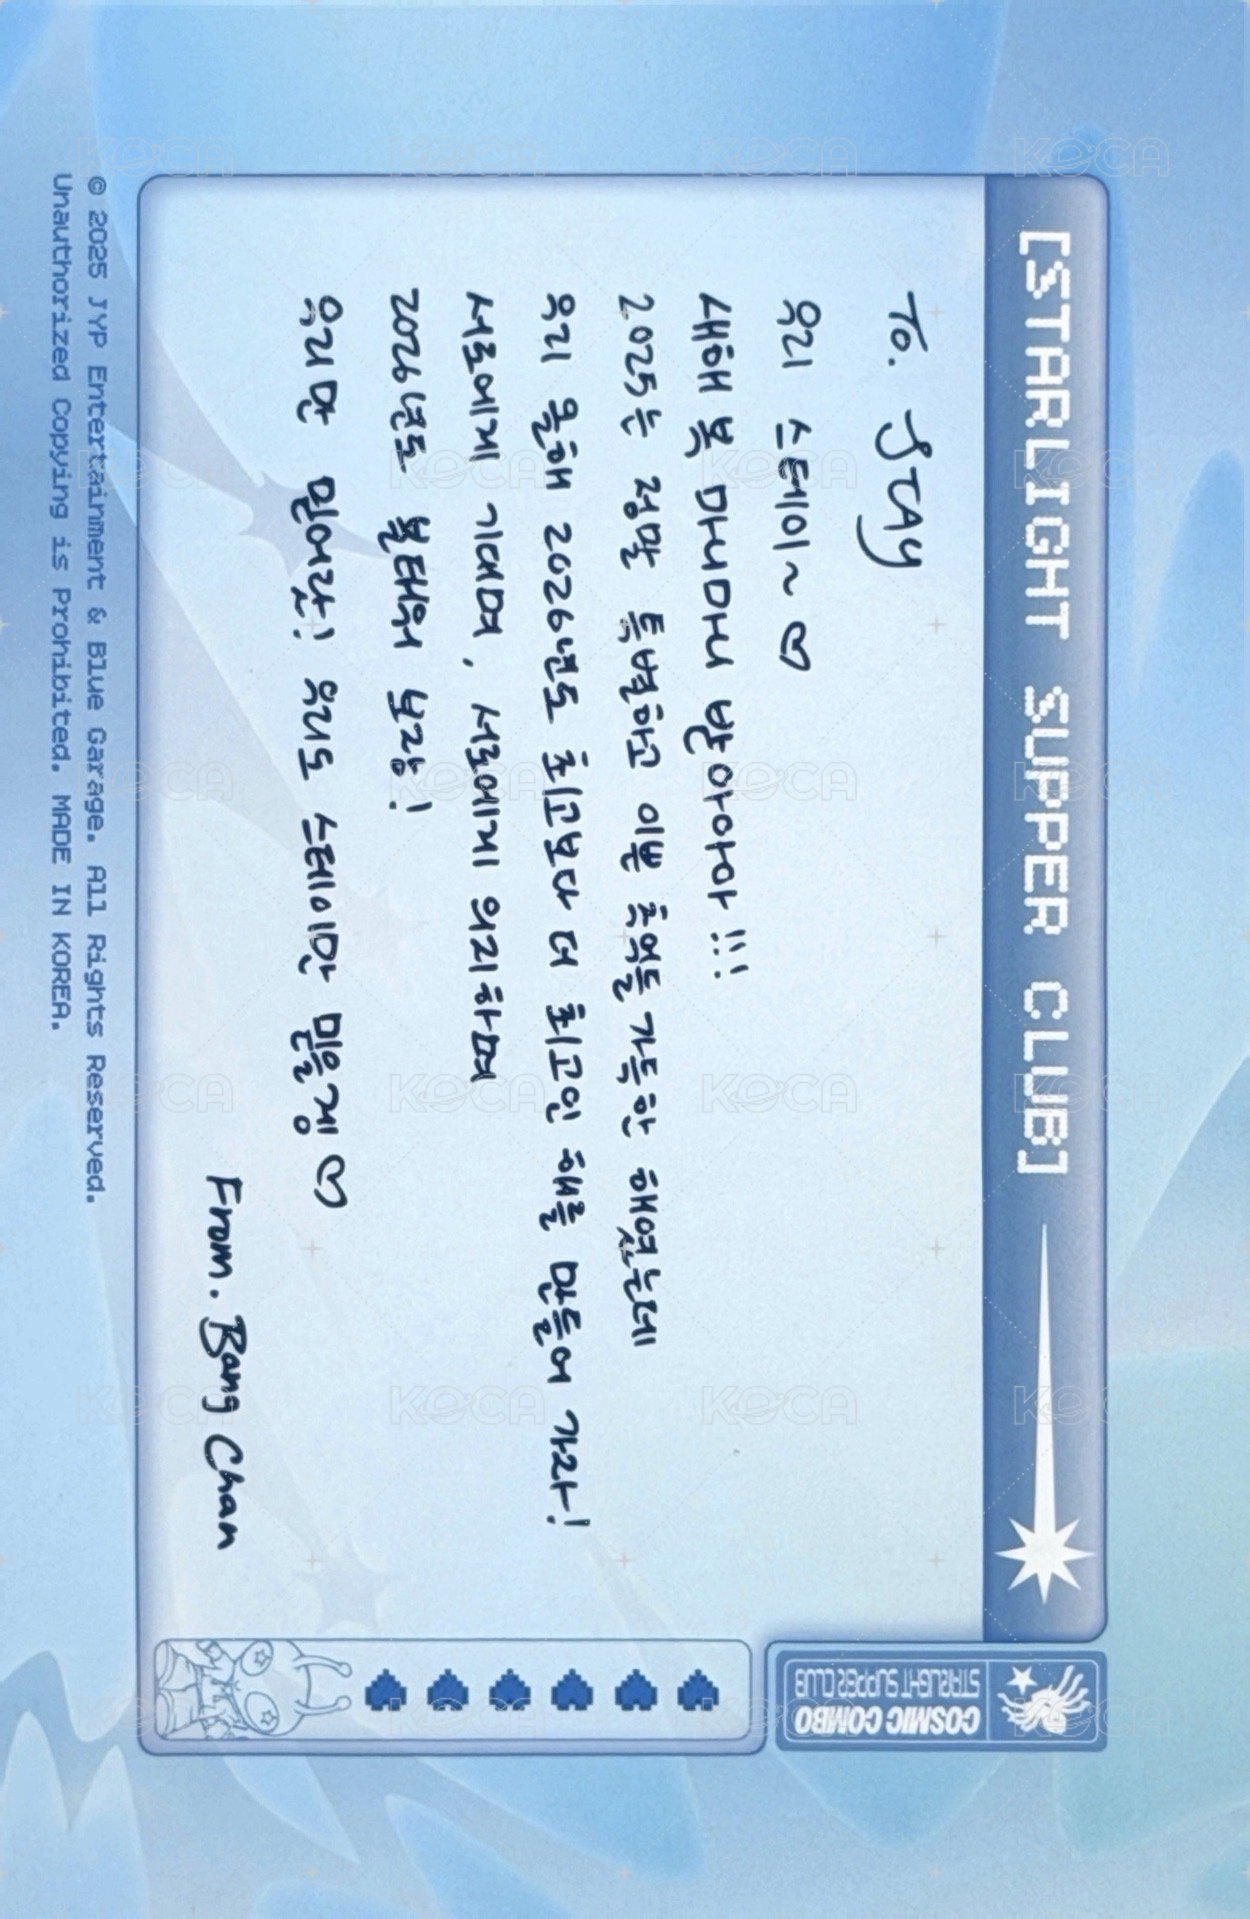 [STARLIGHT SUPPER CLUB]
To. STAY
우리 스테이~ ♡
새해 복 마니마니 받아아아!!!
2025는 정말 특별하고 이쁜 추억들 가득한 해였는데
우리 올해 2026년도 최고보다 더 최고인 해를 만들어 가자!
서로에게 기대며, 서로에게 의지하며
2026년도 불태워 보장!
우리만 믿어랏! 우리도 스테이만 믿을겡 ♡
From. Bang Chan
© 2025 JYP Entertainment & Blue Garage. All Rights Reserved.
Unauthorized Copying is Prohibited. MADE IN KOREA.
COSMIC COMBO
STARLIGHT SUPPER CLUB
KOCA